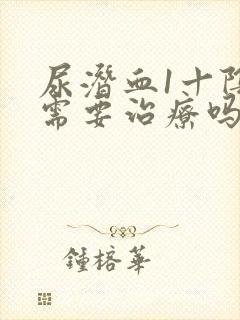 尿潜血1十阳
需要治疗吗
鍾榕華